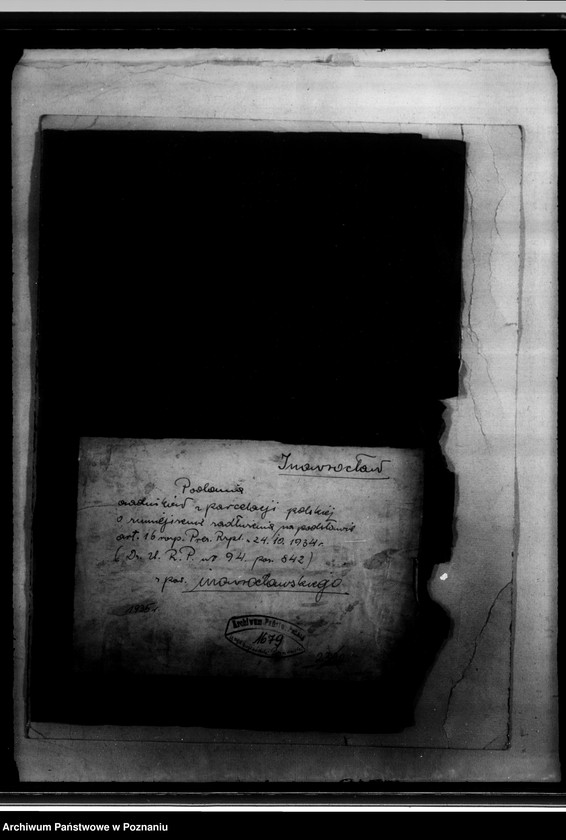 Inowrocław
Podania
osadników z parcelacji polskiej
o zmniejszenie zadłużenia na podstawie
art. 16 rozp. Prez. Rzpl. z 24.10.1934 r.
(Dz. U. R. P. nr 94 poz. 842)
z pow. inowrocławskiego
1935 r.
Archiwum
1679
Archiwum Państwowe w Poznaniu